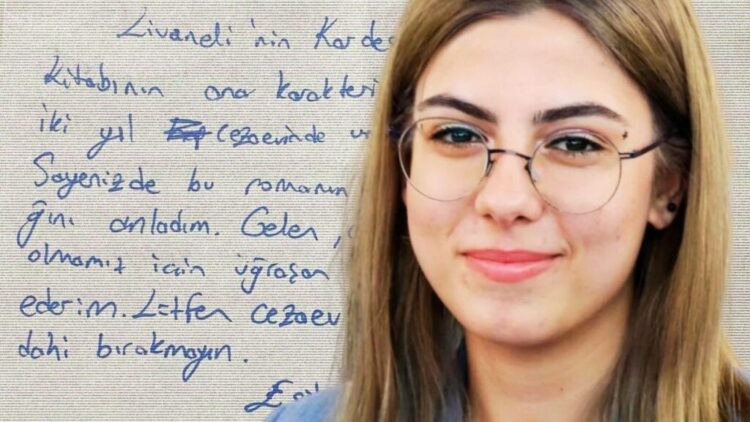 Livaneli'nin Kardeş
kitabının ana karakteri
iki yıl cezaevinde
Sayenizde bu romanın
ğını anladım. Gelen,
olmamız için uğraşan
ederim. Lütfen cezaev
dahi bırakmayın.